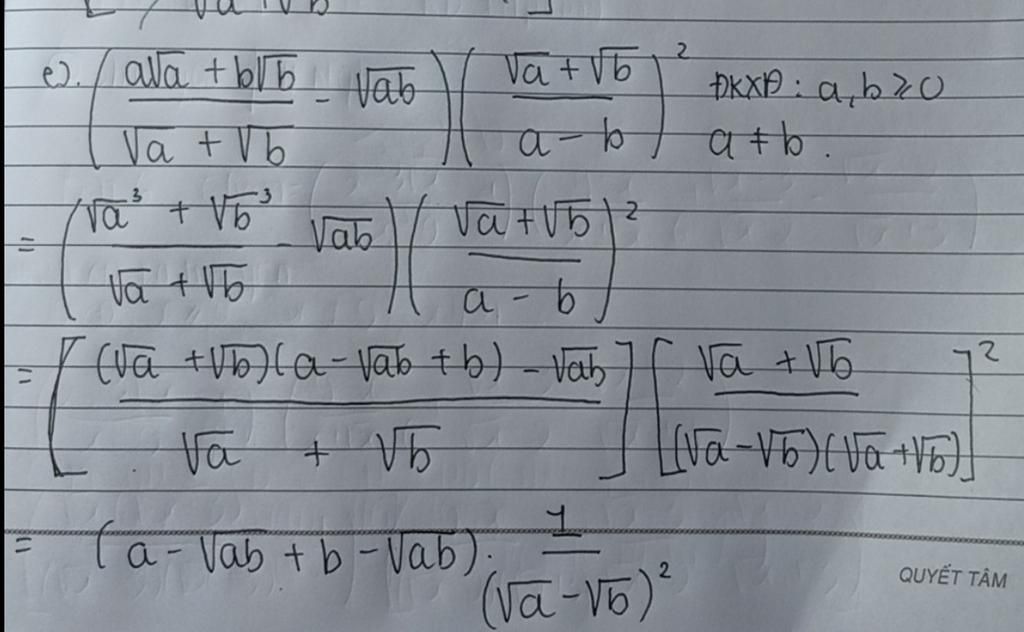 [ ) √a + √b ]
e). ( (a√a + b√b)/(√a + √b) - √ab ) ( (√a + √b)/(a - b) )² ĐKXĐ : a, b ≥ 0
a ≠ b .
= ( (√a³ + √b³)/(√a + √b) - √ab ) ( (√a + √b)/(a - b) )²
= [ ((√a + √b)(a - √ab + b) - √ab)/(√a + √b) ] [ (√a + √b)/((√a - √b)(√a + √b)) ]²
= (a - √ab + b - √ab) . 1/(√a - √b)²
QUYẾT TÂM